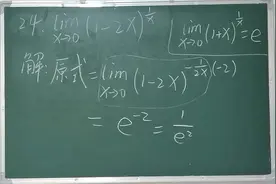 24. lim_{x→0} (1-2x)^{1/x}
lim_{x→0} (1+x)^{1/x} = e
解: 原式 = (lim_{x→0} (1-2x)^{-1/2x})^{(-2)}
= e^{-2} = 1/e^2